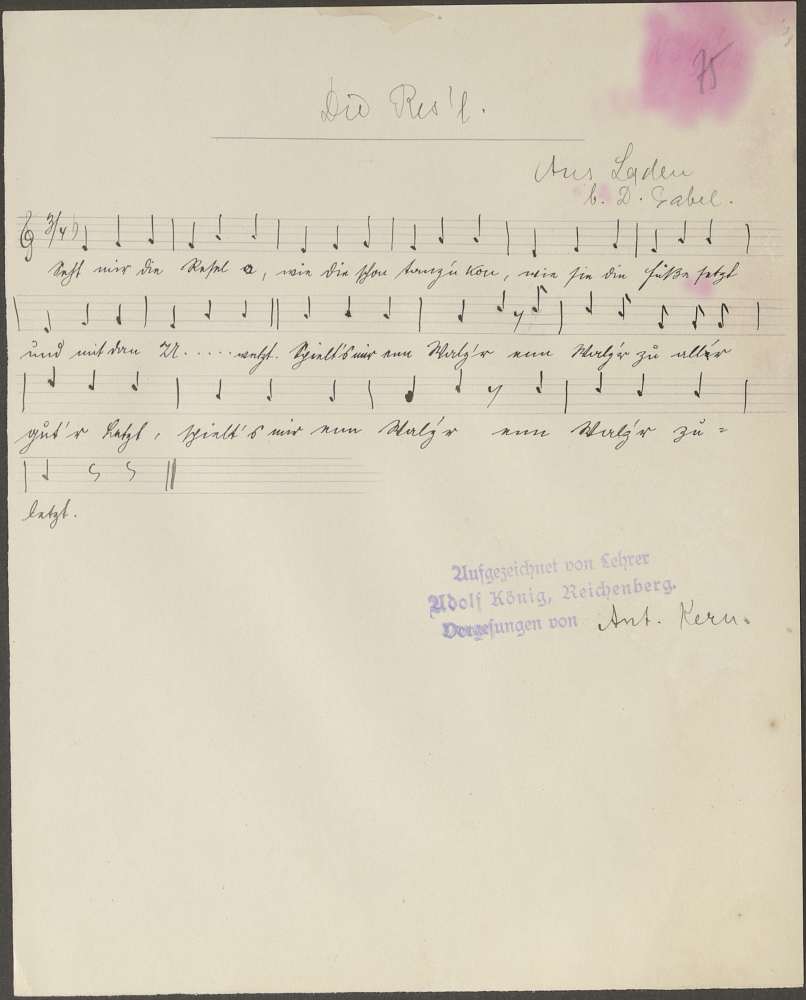 75
Die Res'l.
Aus Laden
b. D. Gabel.
3/4
Seht mir die Resel a, wie die schon tanz'n kon, wie sie die Füße setzt
und mit dan A.....wetzt. Spielt's mir enn Walz'r enn Walz'r zu aller
gut'r Letzt, spielt's mir enn Walz'r enn Walz'r zu=
letzt.
Aufgezeichnet von Lehrer
Adolf König, Reichenberg.
Vorgesungen von Ant. Kern.